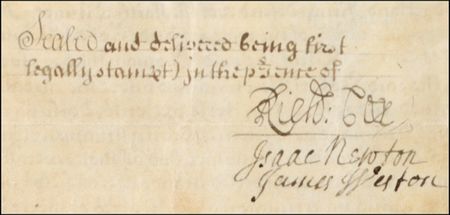 Sealed and delivered being first
legally stampt) in the psence of
Richd: Cox
Isaac Newton
James Weston